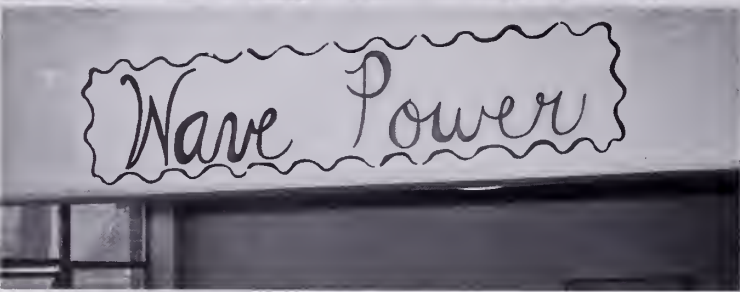 Wave Power